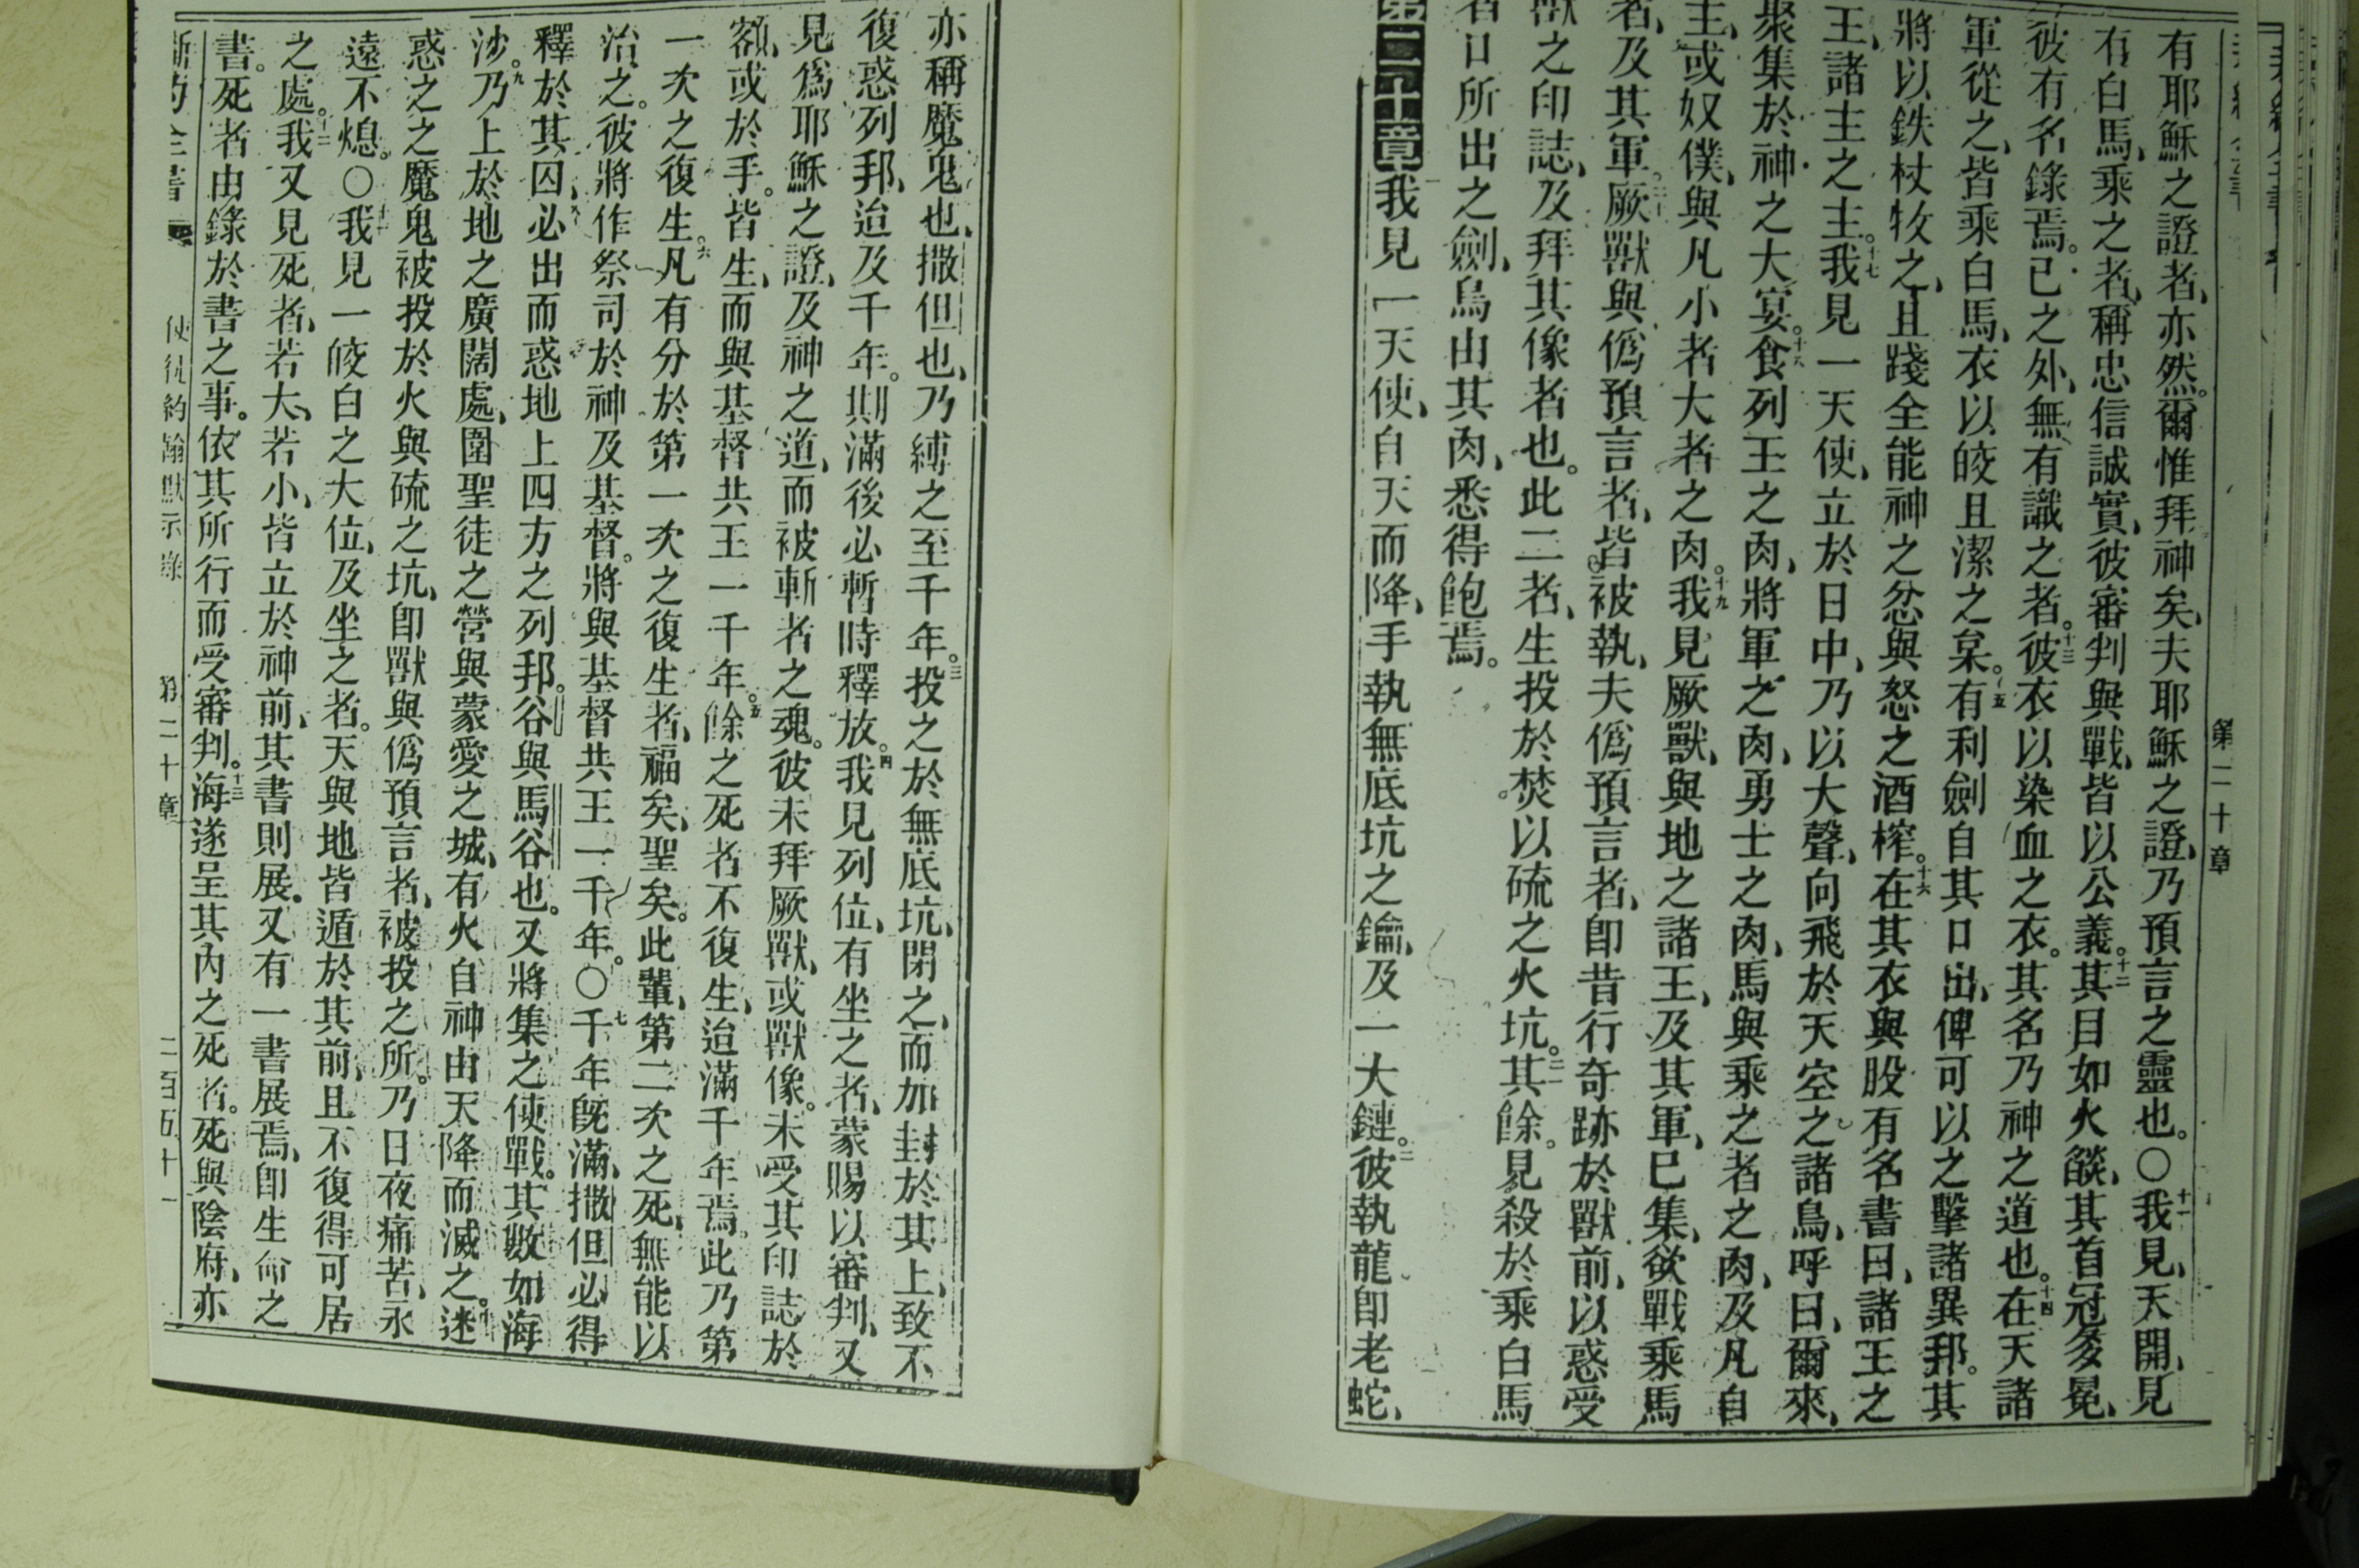 第二十章
有耶穌之證者、亦然。爾惟拜神矣、夫耶穌之證、乃預言之靈也。○十一我見、天開、見
有白馬、乘之者、稱忠信誠實、彼審判與戰、皆以公義。十二其目如火燄、其首冠多冕、
彼有名錄焉。己之外、無有識之者。十三彼衣以染血之衣。其名乃神之道也。十四在天諸
軍從之、皆乘白馬、衣以皎且潔之枲。十五有利劍自其口出、俾可以之擊諸異邦。其
將以鉄杖牧之、且踐全能神之忿與怒之酒榨。十六在其衣與股有名書曰、諸王之
王、諸主之主。十七我見一天使、立於日中、乃以大聲、向飛於天空之諸鳥、呼曰、爾來、
聚集於神之大宴。十八食列王之肉、將軍之肉、勇士之肉、馬與乘之者之肉、及凡自
主、或奴僕、與凡小者大者之肉。十九我見厥獸、與地之諸王、及其軍、已集、欲戰乘馬
者、及其軍。二十厥獸與僞預言者、皆被執、夫僞預言者、卽昔行奇跡於獸前、以惑受
獸之印誌、及拜其像者也。此二者、生投於焚以硫之火坑。二一其餘。見殺於乘白馬
者口所出之劍、鳥由其肉、悉得飽焉。
第二十章我見一天使、自天而降、手執無底坑之鑰、及一大鏈。二彼執龍卽老蛇、
亦稱魔鬼也、撒但也、乃縛之至千年。三投之於無底坑、閉之、而加封於其上、致不
復惑列邦、迨及千年。期滿後必暫時釋放。四我見列位、有坐之者、蒙賜以審判、又
見爲耶穌之證、及神之道、而被斬者之魂。彼未拜厥獸、或獸像。未受其印誌於
額、或於手。皆生、而與基督共王一千年。五餘之死者不復生、迨滿千年焉。此乃第
一次之復生。六凡有分於第一次之復生者、福矣、聖矣。此輩、第二次之死、無能以
治之。彼將作祭司於神及基督。將與基督共王一千年。○七千年旣滿、撒但必得
釋於其囚、八必出而惑地上四方之列邦。谷與馬谷也。又將集之使戰。其數如海
沙。九乃上於地之廣闊處、圍聖徒之營與蒙愛之城、有火自神由天降而滅之。十迷
惑之之魔鬼被投於火與硫之坑、卽獸與僞預言者、被投之所。乃日夜痛苦、永
遠不熄。○十一我見一皎白之大位、及坐之者。天與地皆遁於其前、且不復得可居
之處。十二我又見死者、若大、若小、皆立於神前、其書則展。又有一書展焉、卽生命之
書。死者由錄於書之事。依其所行而受審判。十三海遂呈其內之死者。死與陰府、亦
新約全書 使徒約翰默示錄 第二十章 二百五十一